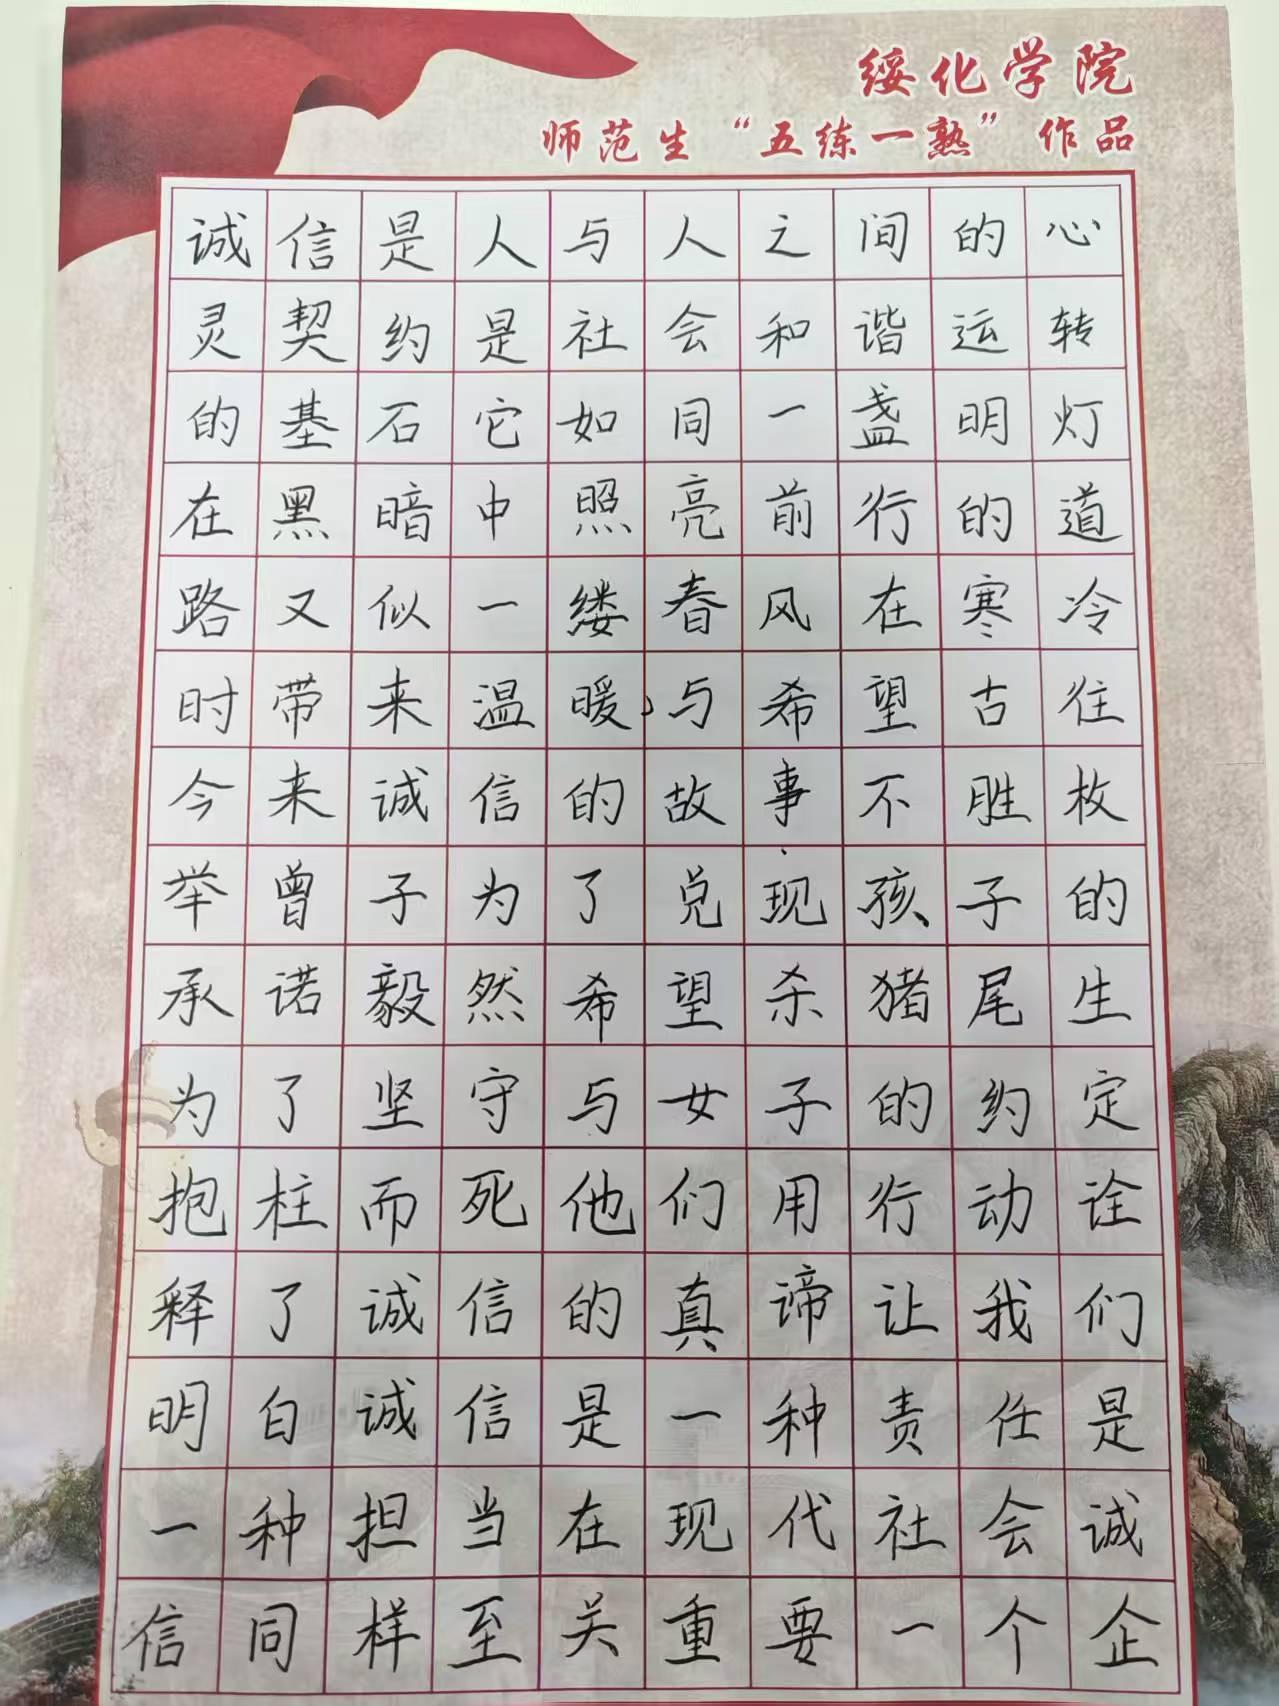 绥化学院
师范生“五练一熟”作品
诚信是人与人之间的心
灵契约是社会和谐运转
的基石它如同一盏明灯
在黑暗中照亮前行的道
路又似一缕春风在寒冷
时带来温暖与希望古往
今来诚信的故事不胜枚
举曾子为了兑现孩子的
承诺毅然希望杀猪尾生
为了坚守与女子的约定
抱柱而死他们用行动诠
释了诚信的真谛让我们
明白诚信是一种责任是
一种担当在现代社会诚
信同样至关重要一个企